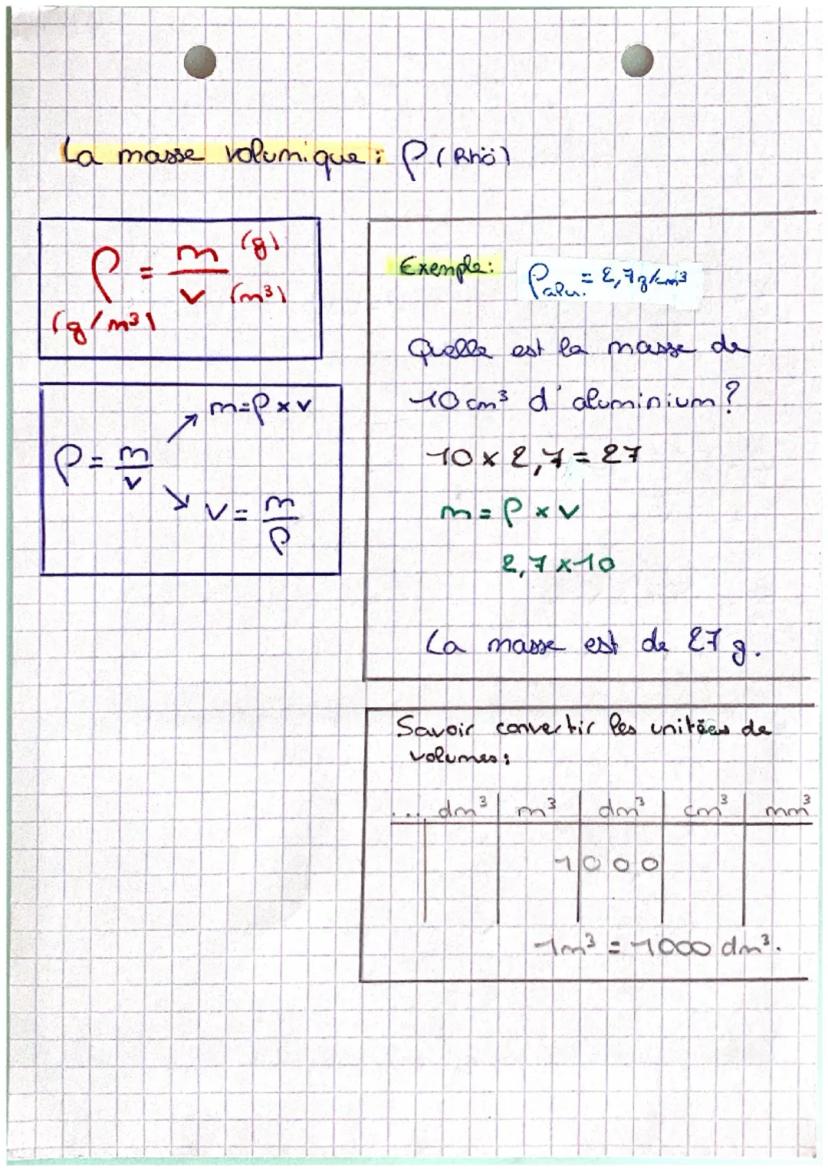 La masse volumique : ρ (Rhö)
ρ = m/v
(g)
(m³)
(g/m³)
ρ = m/v
↗ m=ρ x v
↘ v = m/ρ
Exemple:
ρalu. = 2,7g/cm³
Quelle est la masse de
10 cm³ d'aluminium ?
10 x 2,7 = 27
m = ρ x v
2,7 x 10
La masse est de 27 g.
Savoir convertir les unitées de
volumes :
... dm³ | m³ | dm³ | cm³ | mm³
1 | 0 0 0
1m³ = 1000 dm³.